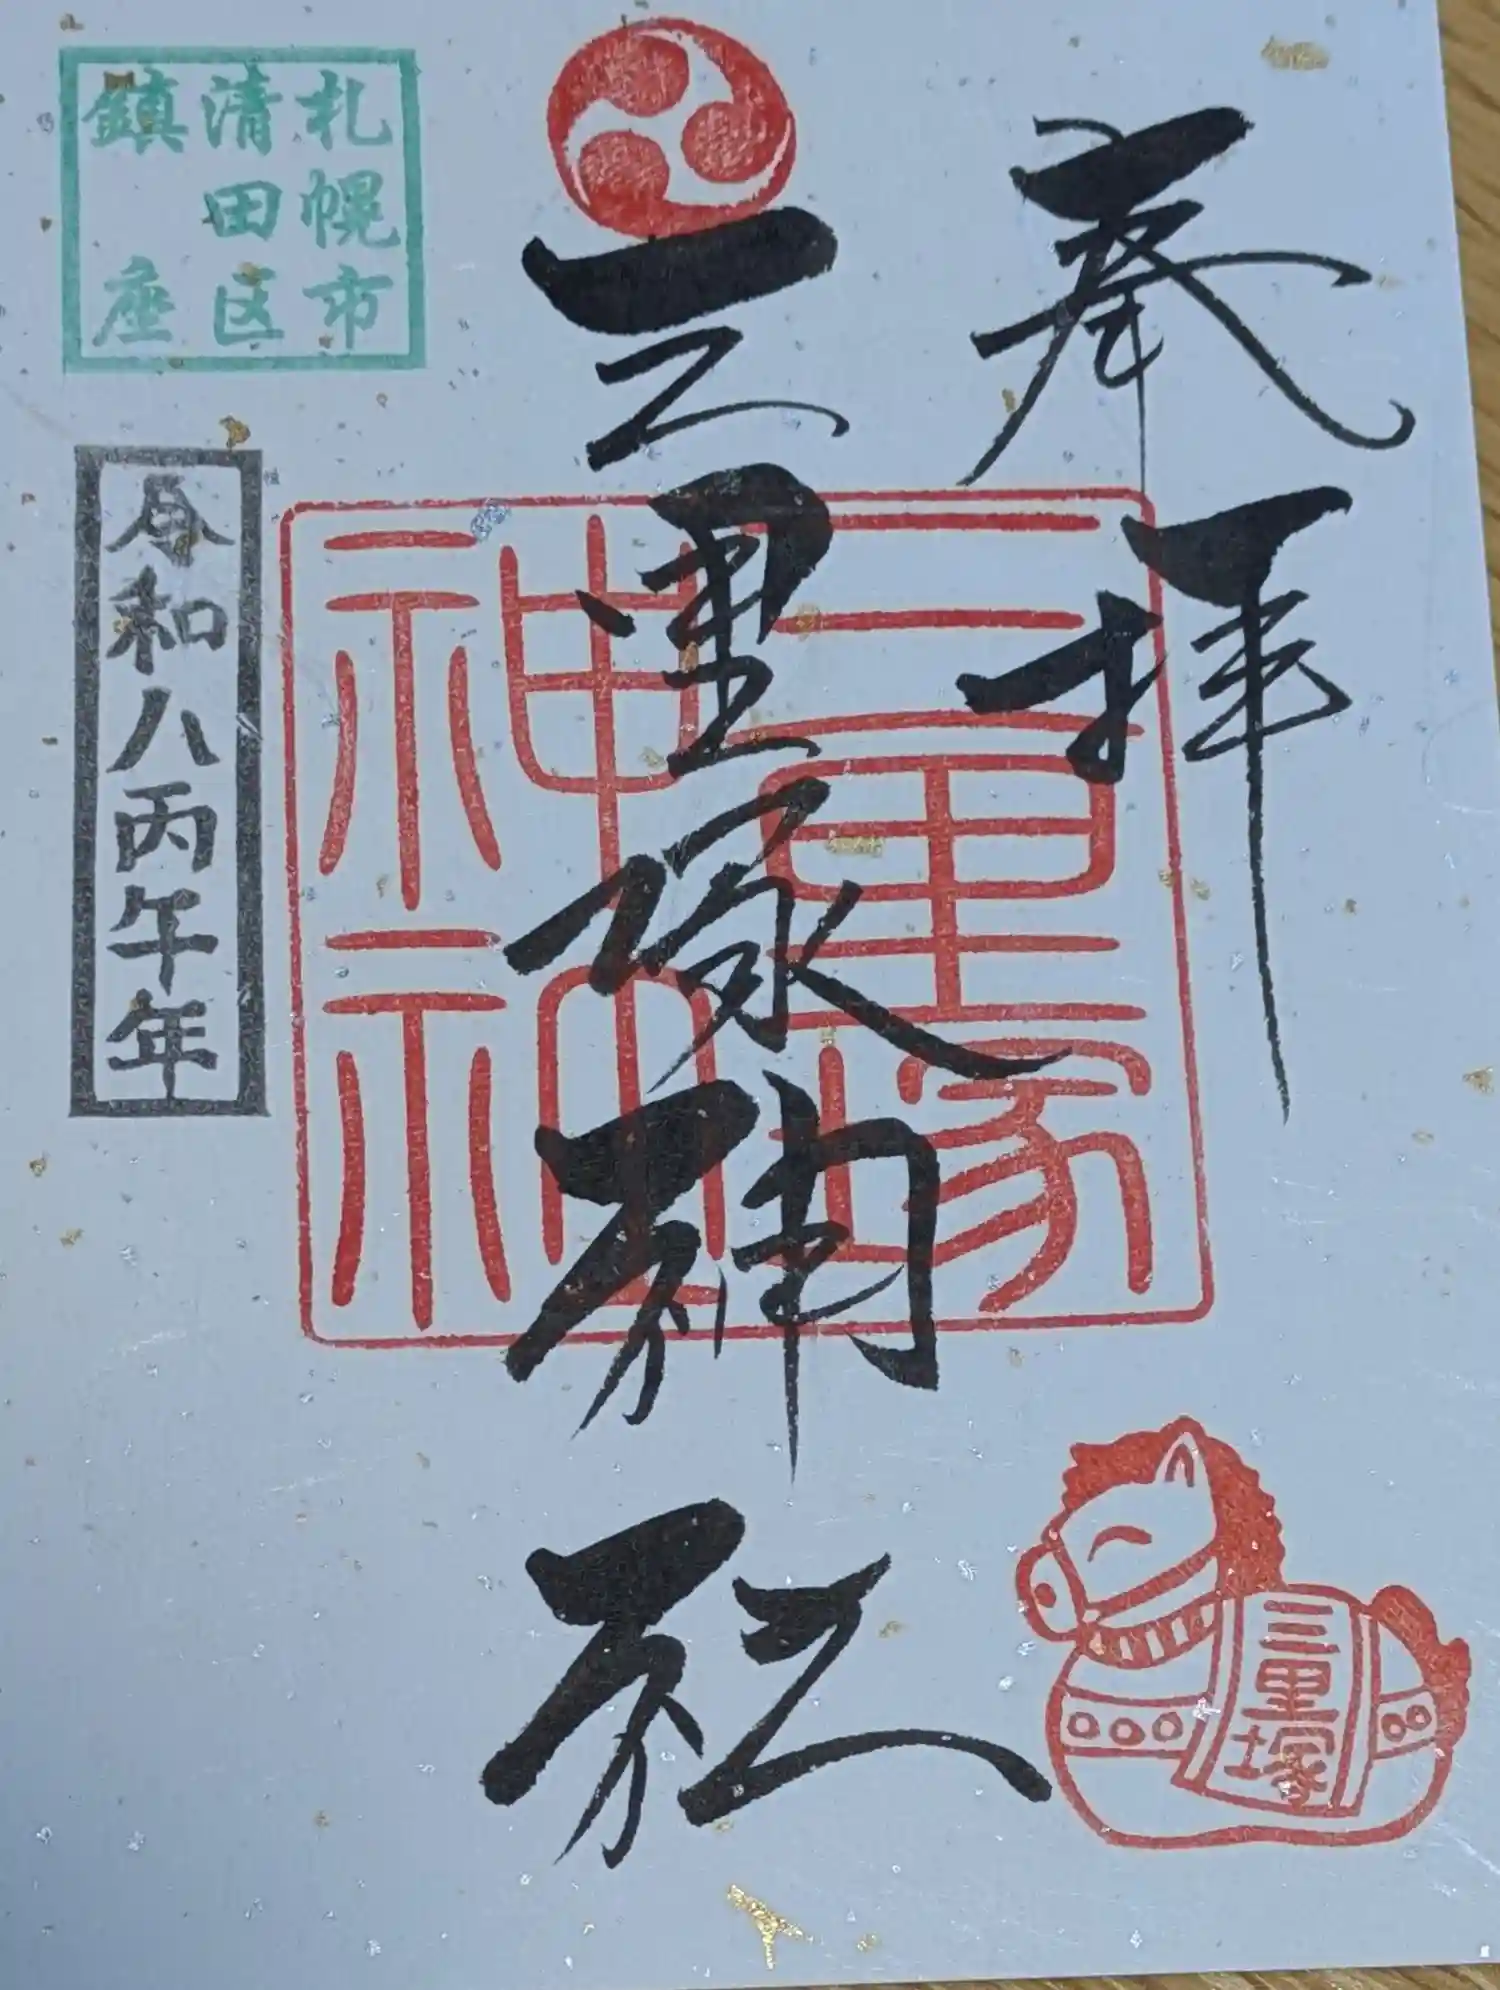 奉拝
三里塚神社
三里塚神社
札幌市
清田区
鎮座
令和八丙午年
三里塚